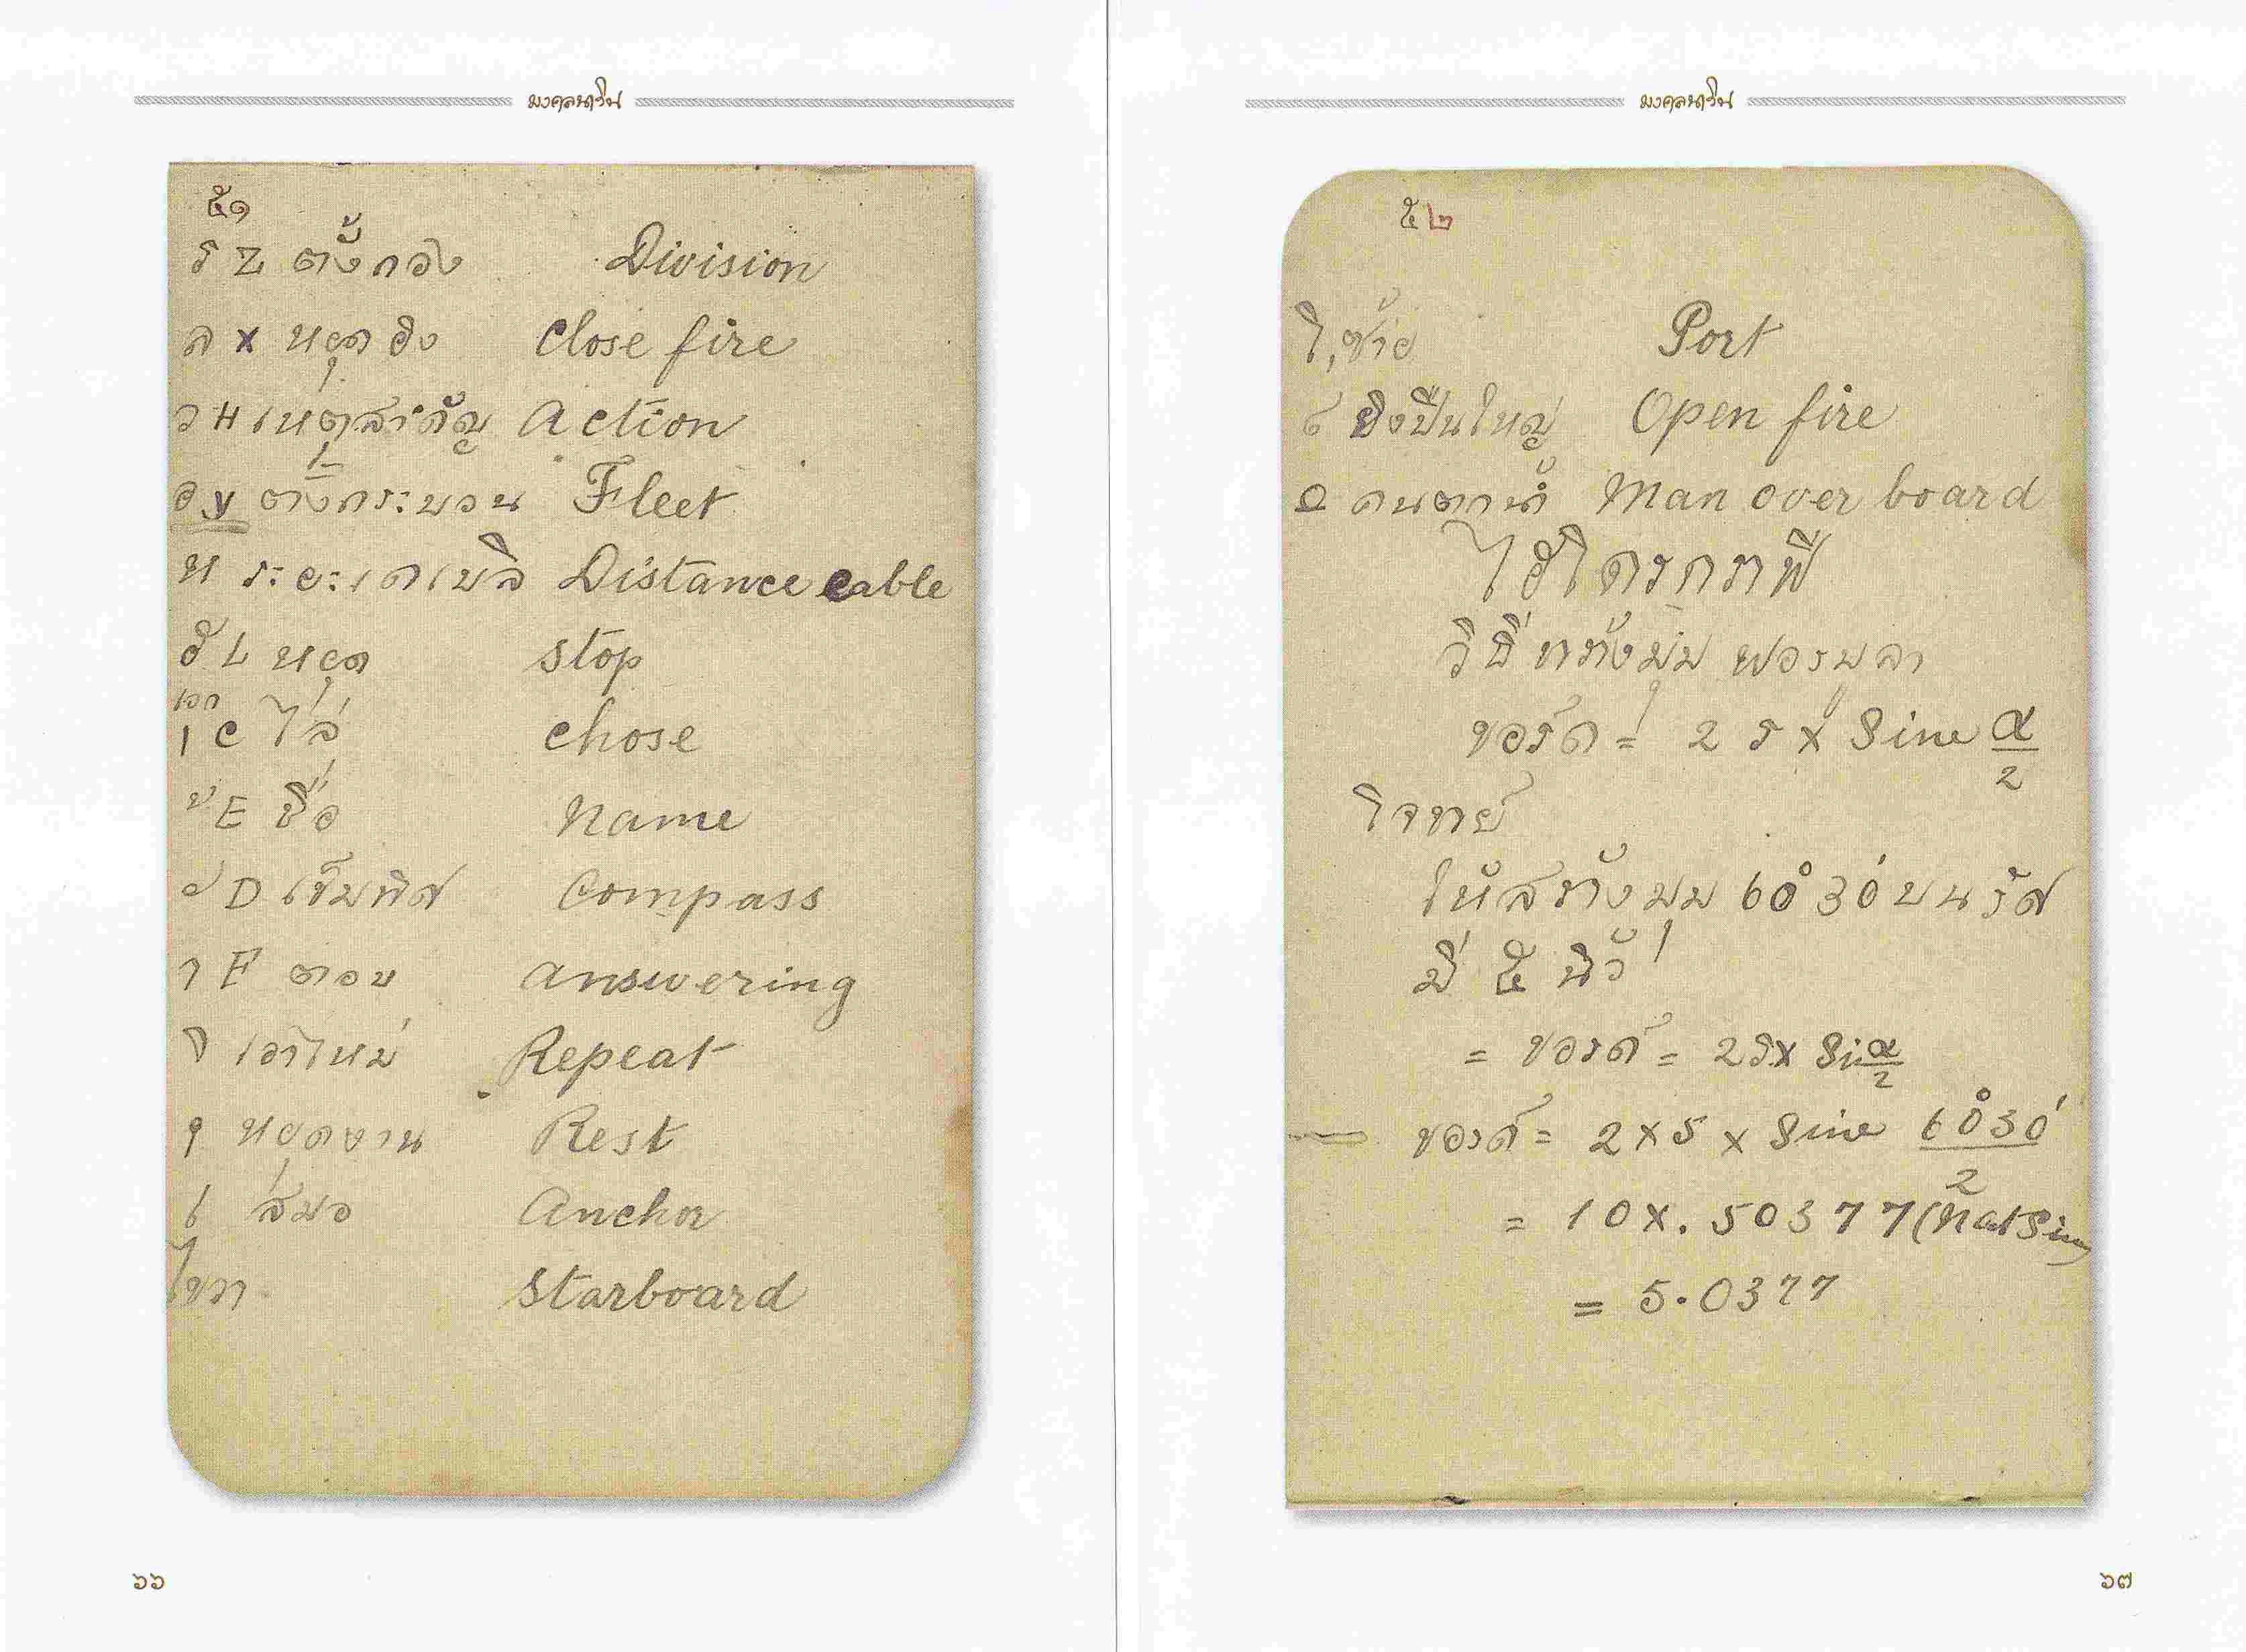 มงคลนาวิน
๕๑
ร Z ตั้งกอง Division
ล x หยุดยิง Close fire
ว H เหตุสำคัญ Action
อ y ตั้งกระบวน Fleet
ห ระยะเคเบิล Distance cable
ฮ L หยุด Stop
เอก
C ไล่ chose
E ชื่อ Name
D เข็มทิศ Compass
า F ตอบ answering
เอาใหม่ Repeat
หยุดงาน Rest
สมอ Anchor
ขวา Starboard
๖๖
มงคลนาวิน
๕๒
โ, ซ้าย Port
ยิงปืนใหญ่ Open fire
คนตกน้ำ Man over board
ไฮโดรกราฟี
วิธีทรางมุม ฟอรมูลา
ขอร์ด = 2 ร x Sine α/2
โจทย์
ให้สร้างมุม 60°30' บนรัศ
มี ๕ นิ้ว
= ขอรด์ = 2 ร x Sin α/2
ขอรด์ = 2 x 5 x Sine 60°30'/2
= 10 x .50377 (Nat Sine)
= 5.0377
๖๗